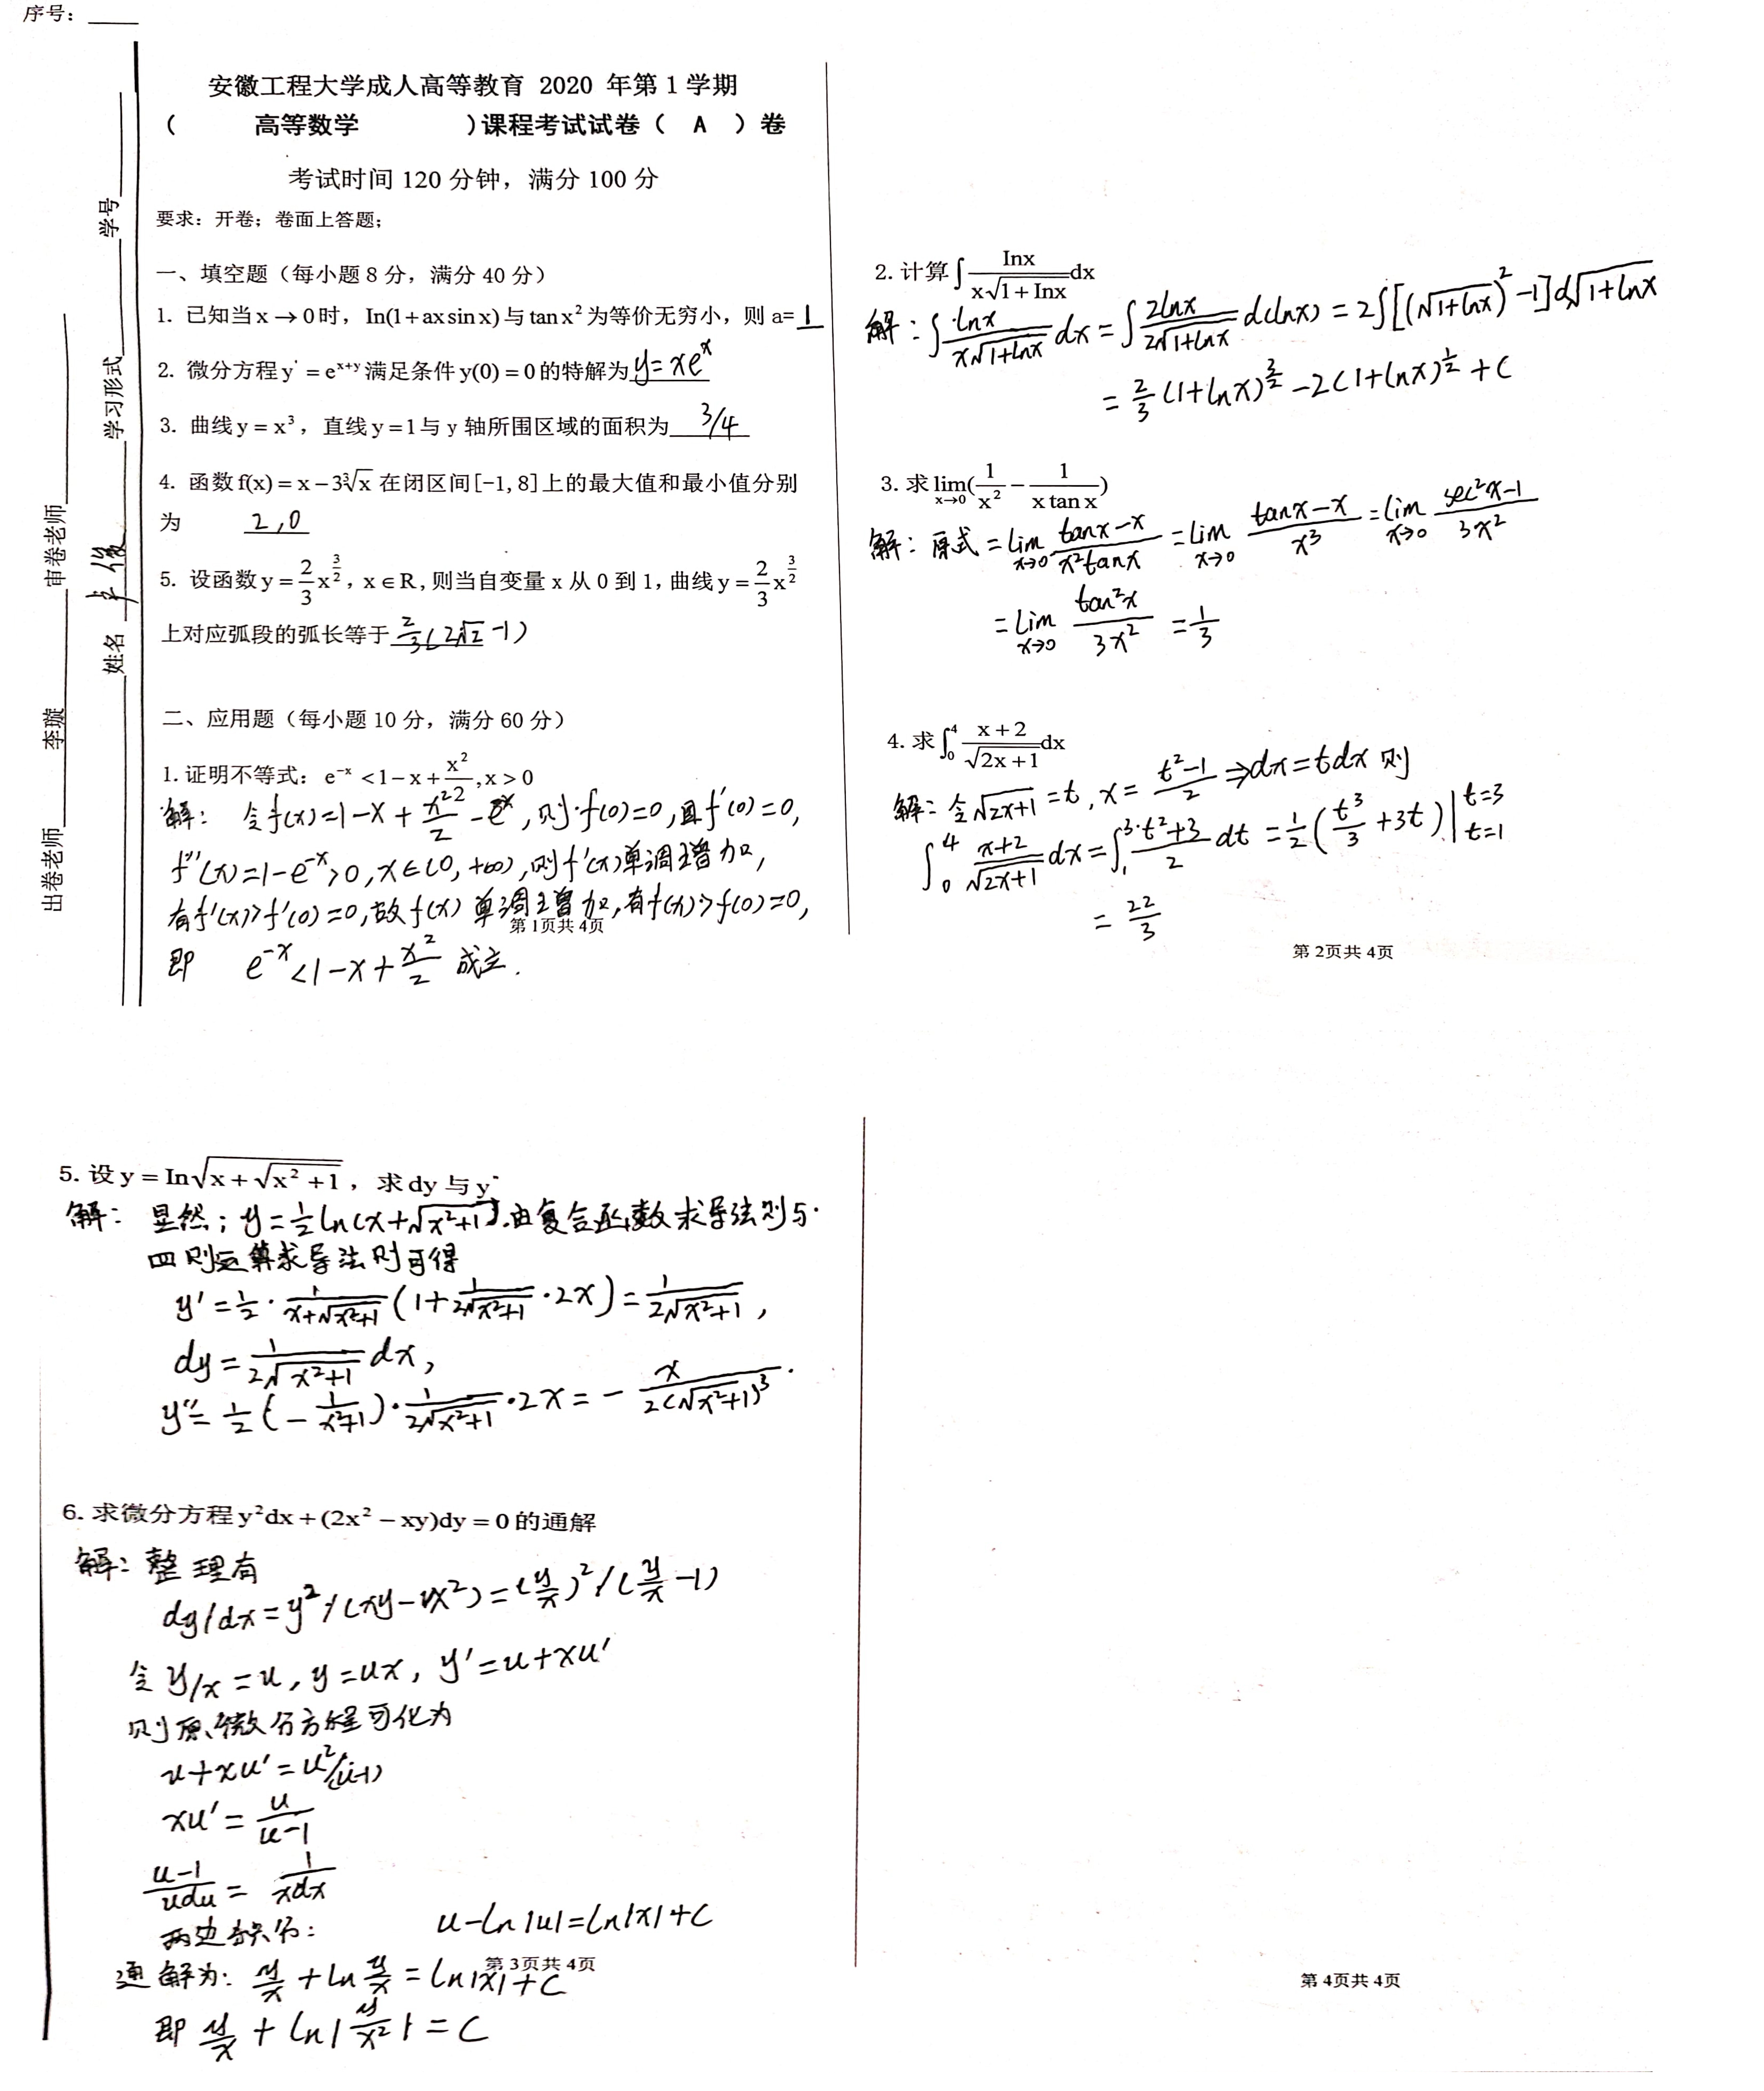 序号：____
安徽工程大学成人高等教育 2020 年第 1 学期
（ 高等数学 ）课程考试试卷（ A ）卷
考试时间 120 分钟，满分 100 分
要求：开卷；卷面上答题；
一、填空题（每小题 8 分，满分 40 分）
1. 已知当 x → 0 时，In(1+axsinx) 与 tanx² 为等价无穷小，则 a= 1
2. 微分方程 y' = e^(x+y) 满足条件 y(0) = 0 的特解为 y=xe^x
3. 曲线 y = x³，直线 y = 1 与 y 轴所围区域的面积为 3/4
4. 函数 f(x) = x − 3∛x 在闭区间 [−1, 8] 上的最大值和最小值分别
为 2,0
5. 设函数 y = 2/3 x^(3/2)，x ∈ R, 则当自变量 x 从 0 到 1, 曲线 y = 2/3 x^(3/2)
上对应弧段的弧长等于 2/3(2√2 -1)
二、应用题（每小题 10 分，满分 60 分）
1. 证明不等式：e^(-x) < 1 − x + x²/2, x > 0
解： 令f(x)=1-x+x²/2-e^-x, 则f(0)=0, 且f'(0)=0,
f''(x)=1-e^-x>0, x∈(0, +∞), 则f'(x)单调增加,
有f'(x)>f'(0)=0, 故f(x) 单调增加, 有f(x)>f(0)=0,
第 1页共 4页
即 e^-x<1-x+x²/2 成立.
学号
学习形式
姓名 卓俊
审卷老师
出卷老师 李璇
2. 计算 ∫ Inx/(x√(1+Inx)) dx
解：∫ lnx/(x√(1+lnx)) dx = ∫ 2lnx/(2√(1+lnx)) d(lnx) = 2∫[(√(1+lnx))²-1]d√(1+lnx)
= 2/3 (1+lnx)^(3/2) -2(1+lnx)^(1/2) +C
3. 求 lim(x→0) (1/x² − 1/(x tan x))
解：原式 = lim(x→0) (tanx-x)/(x²tanx) = lim(x→0) (tanx-x)/x³ = lim(x→0) (sec²x-1)/3x²
= lim(x→0) tan²x/3x² = 1/3
4. 求 ∫₀⁴ (x+2)/√(2x+1) dx
解：令√(2x+1) =t, x= (t²-1)/2 ⇒dx=tdx 则
∫₀⁴ (x+2)/√(2x+1) dx = ∫₁³ (t²+3)/2 dt = 1/2 (t³/3 +3t) | t=3 t=1
= 22/3
第 2页共 4页
5. 设 y = In√(x+√(x²+1))，求 dy 与 y''
解： 显然; y=1/2 ln(x+√(x²+1)).由复合函数求导法则与
四则运算求导法则可得
y' = 1/2 · 1/(x+√(x²+1)) (1+ 1/(2√(x²+1)) ·2x) = 1/(2√(x²+1)),
dy = 1/(2√(x²+1)) dx,
y''= 1/2 (- 1/(x²+1)) · 1/(2√(x²+1)) ·2x = - x/(2(√(x²+1))³).
6. 求微分方程 y²dx + (2x² − xy)dy = 0 的通解
解：整理有
dy/dx = y²/(xy-x²) = (y/x)²/(y/x -1)
令 y/x =u, y=ux, y'=u+xu'
则原微分方程可化为
u+xu' = u²/(u-1)
xu' = u/(u-1)
(u-1)/udu = 1/xdx
两边积分： u-ln|u|=ln|x|+C
第 3页共 4页
通解为: y/x +ln y/x = ln|x|+C
即 y/x + ln|y/x²| = C
第 4页共 4页